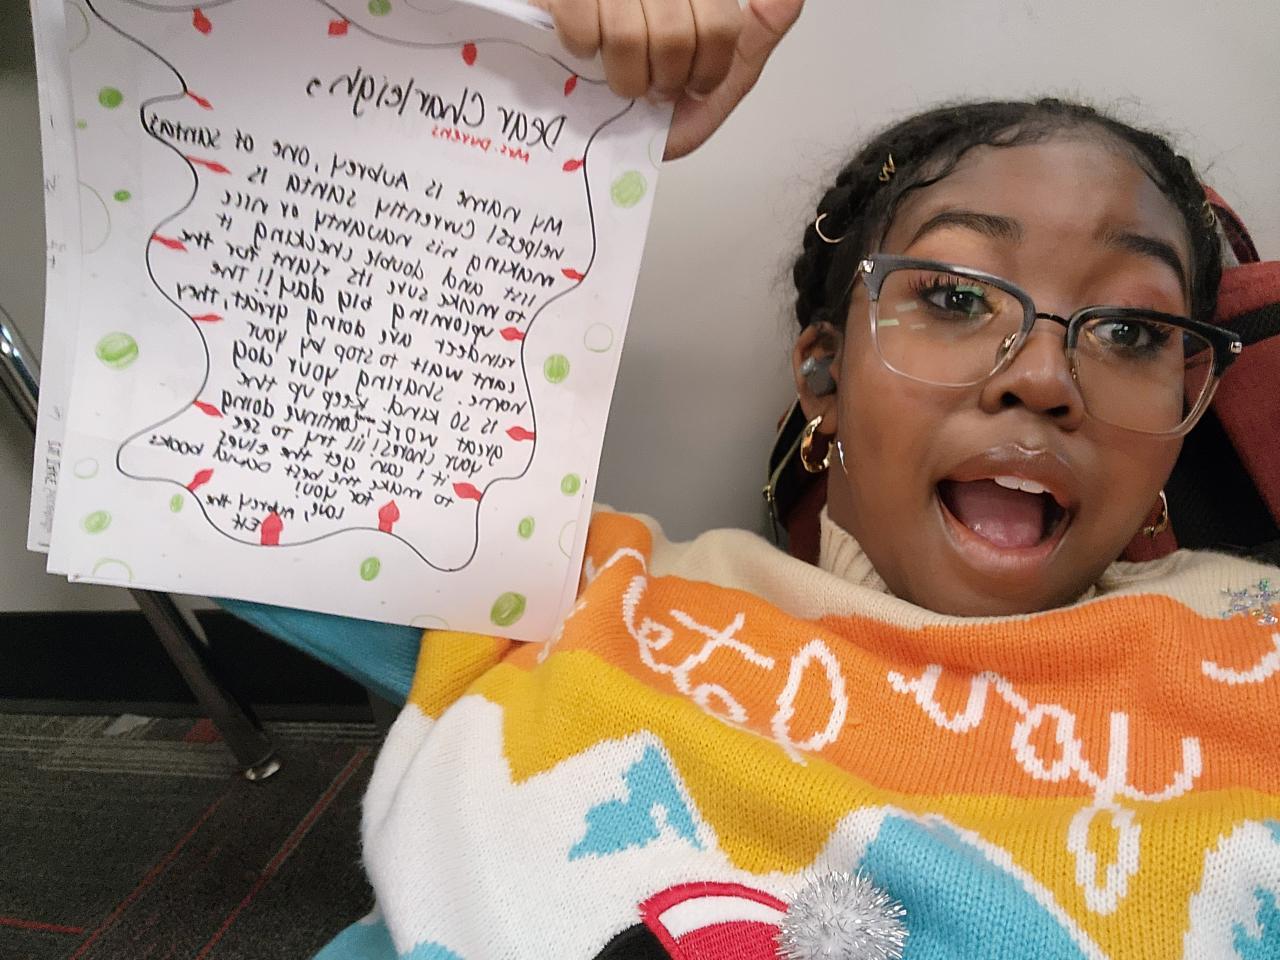 Dear Charleigh,
Mrs. Durens
My name is Aubrey, one of Santas
helpers! Currently Santa is
making his naughty or nice
list and double checking it
to make sure its right for the
upcoming big day!! The
reindeer are doing great, they
cant wait to stop by your
home. Sharing your dog
is so kind. Keep up the
great work and continue doing
your chores! ill try to see
if I can get the elves
to make the best books
for you!
Love, Aubrey the
Elf